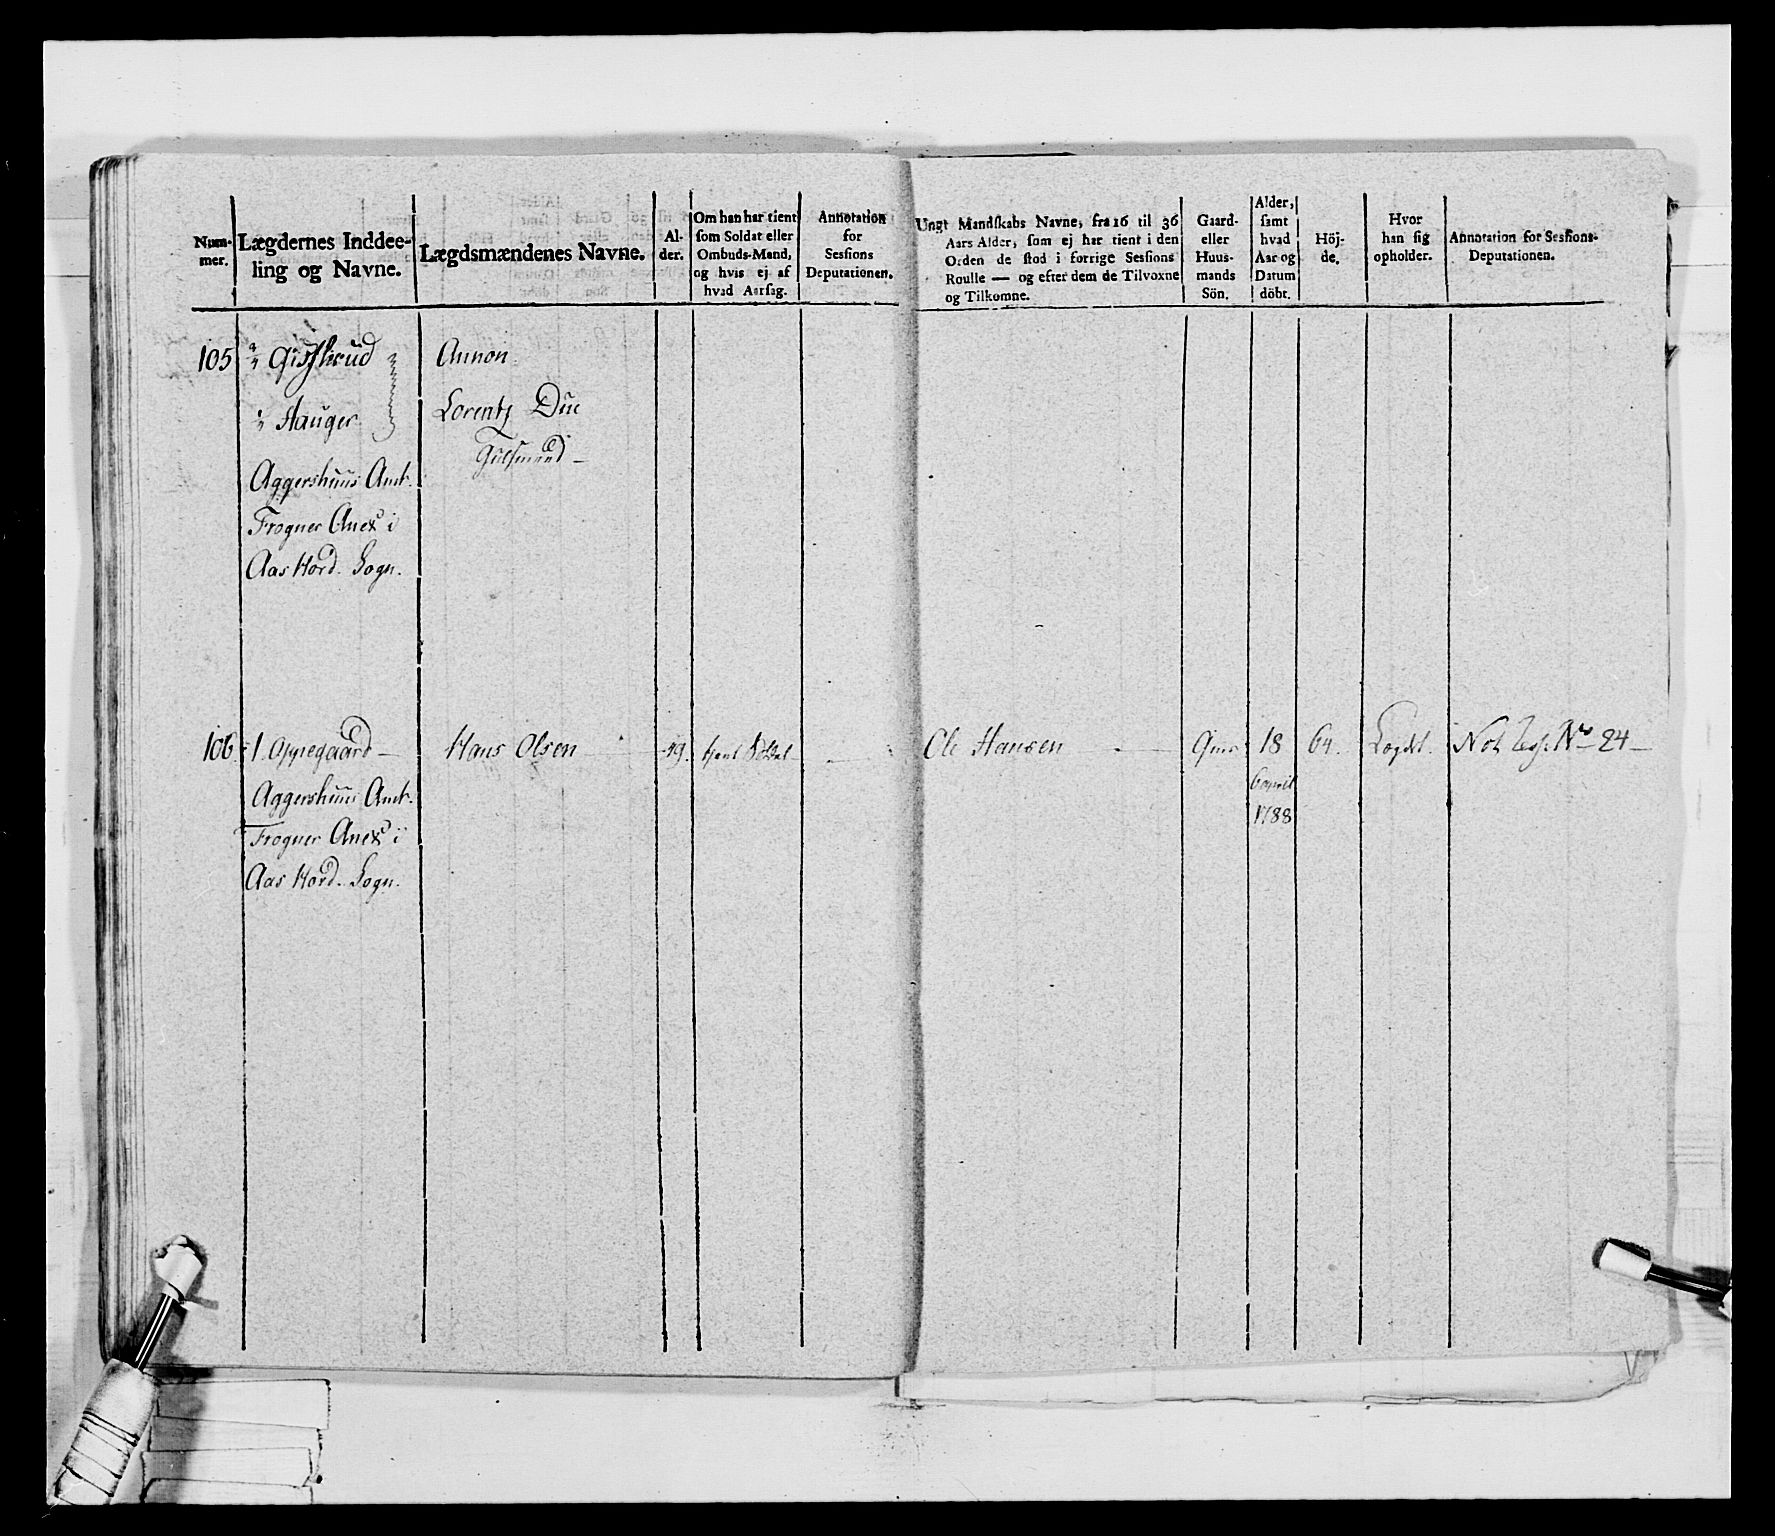 Num-
mer.
Lægdernes Inddee-
ling og Navne.
Lægdsmændenes Navne.
Al-
der.
Om han har tient
som Soldat eller
Ombuds-Mand,
og hvis ej af
hvad Aarsag.
Annotation
for
Sessions
Deputationen.
Ungt Mandskabs Navne, fra 16 til 36
Aars Alder, som ej har tient i den
Orden de stod i forrige Sessions
Roulle — og efter dem de Tilvoxne
og Tilkomne.
Gaard-
eller
Huus-
mands
Sön.
Alder,
samt
hvad
Aar og
Datum
döbt.
Höj-
de.
Hvor
han sig
opholder.
Annotation for Sessions-
Deputationen.
105
Annon
Hauger
Lorentz Due
Aggershuus Amt.
Frogner Anex i
Aas Hovd. Sogn.
106. 1 Oppegaard — Hans Olsen 49. tient Soldat Ole Hansen — Gmr 18 64. Legdet. No 24 —
6 april
1788
Aggershuus Amt.
Frogner Anex i
Aas Hovd. Sogn.